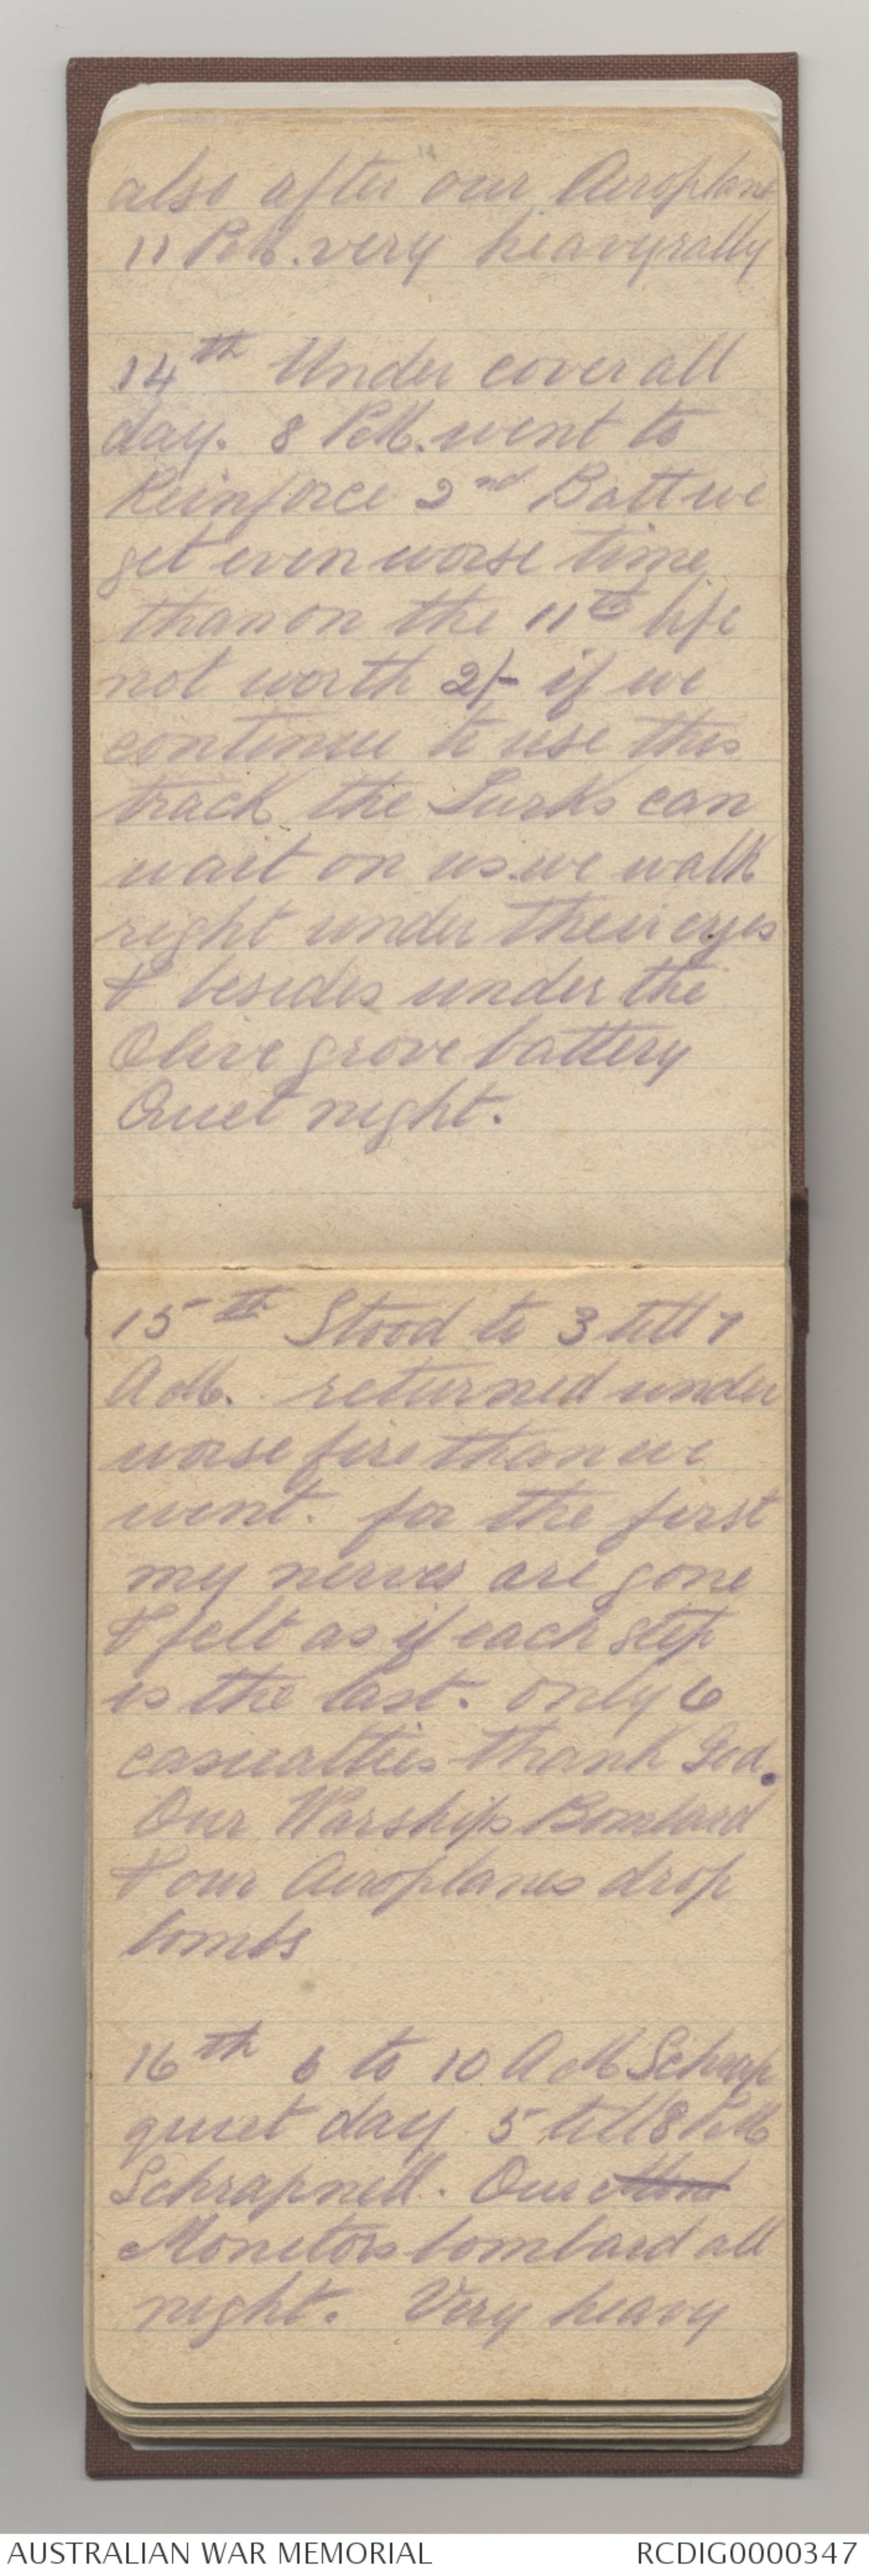 also after our Aeroplane
11 P.M. very heavy rally
14th Under cover all
day. 8 P.M. went to
Reinforce 2nd Batt we
get even worse time
than on the 11th life
not worth 2/- if we
continue to use this
track the Turks can
wait on us. we walk
right under their eyes
& besides under the
Olive grove battery
Quiet night.
15th Stood to 3 till 7
A.M. returned under
worse fire than we
went. for the first
my nerves are gone
& felt as if each step
is the last. only 6
casualties thank God.
Our Warships Bombard
& our Aeroplanes drop
bombs
16th 6 to 10 A M Schrap
quiet day. 5 till 8 P.M
Schrapnell. Our Mont
Monitors bombard all
night. Very heavy
AUSTRALIAN WAR MEMORIAL
RCDIG0000347